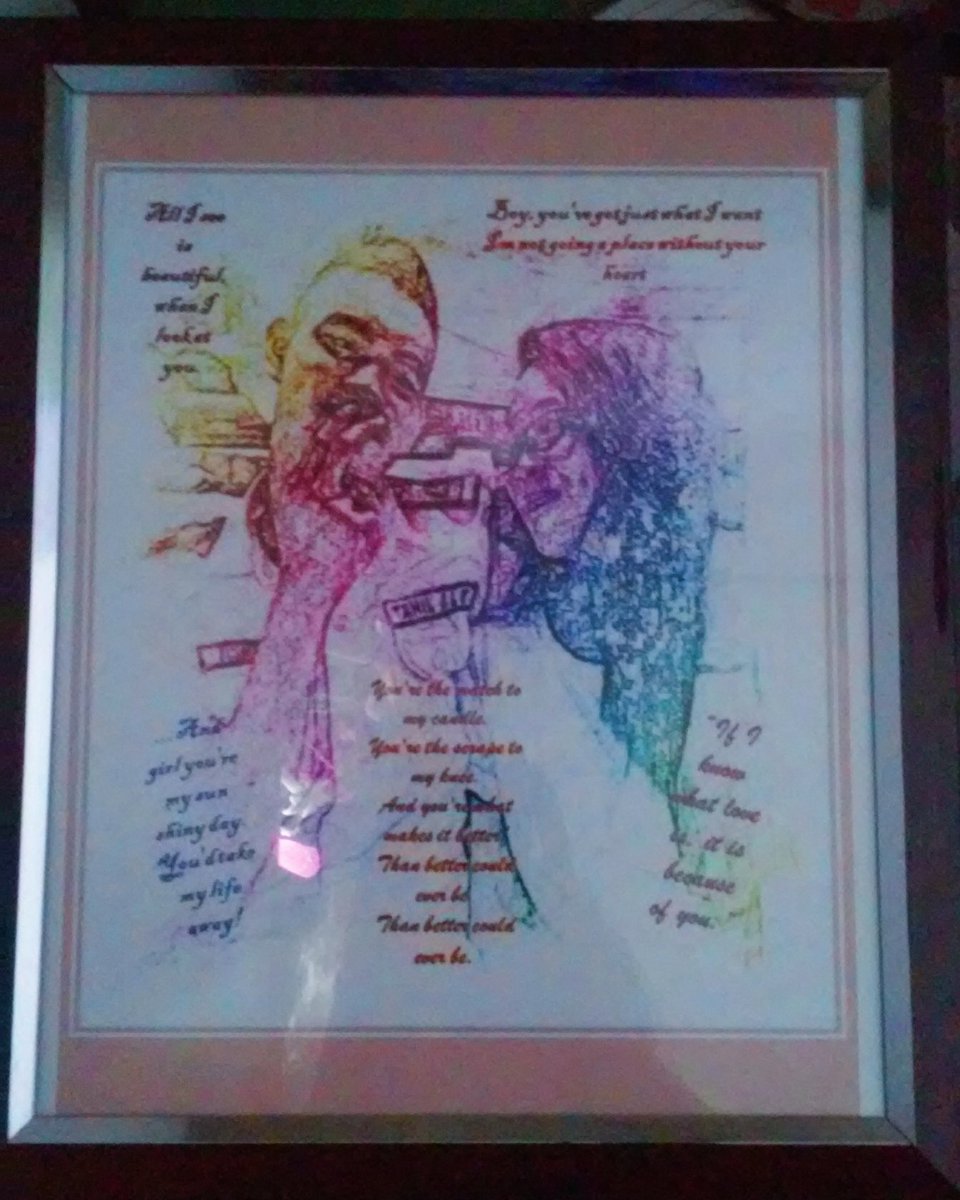 All I see
is
beautiful,
when I
look at
you.
Boy, you've got just what I want
I'm not going a place without your
heart
You're the match to
my candle.
You're the scrape to
my knee.
And you're what
makes it better
Than better could
ever be
Than better could
ever be.
...And
girl you're
my sun
shiny day.
You'd take
my life
away!
"If I
know
what love
is, it is
because
of you.